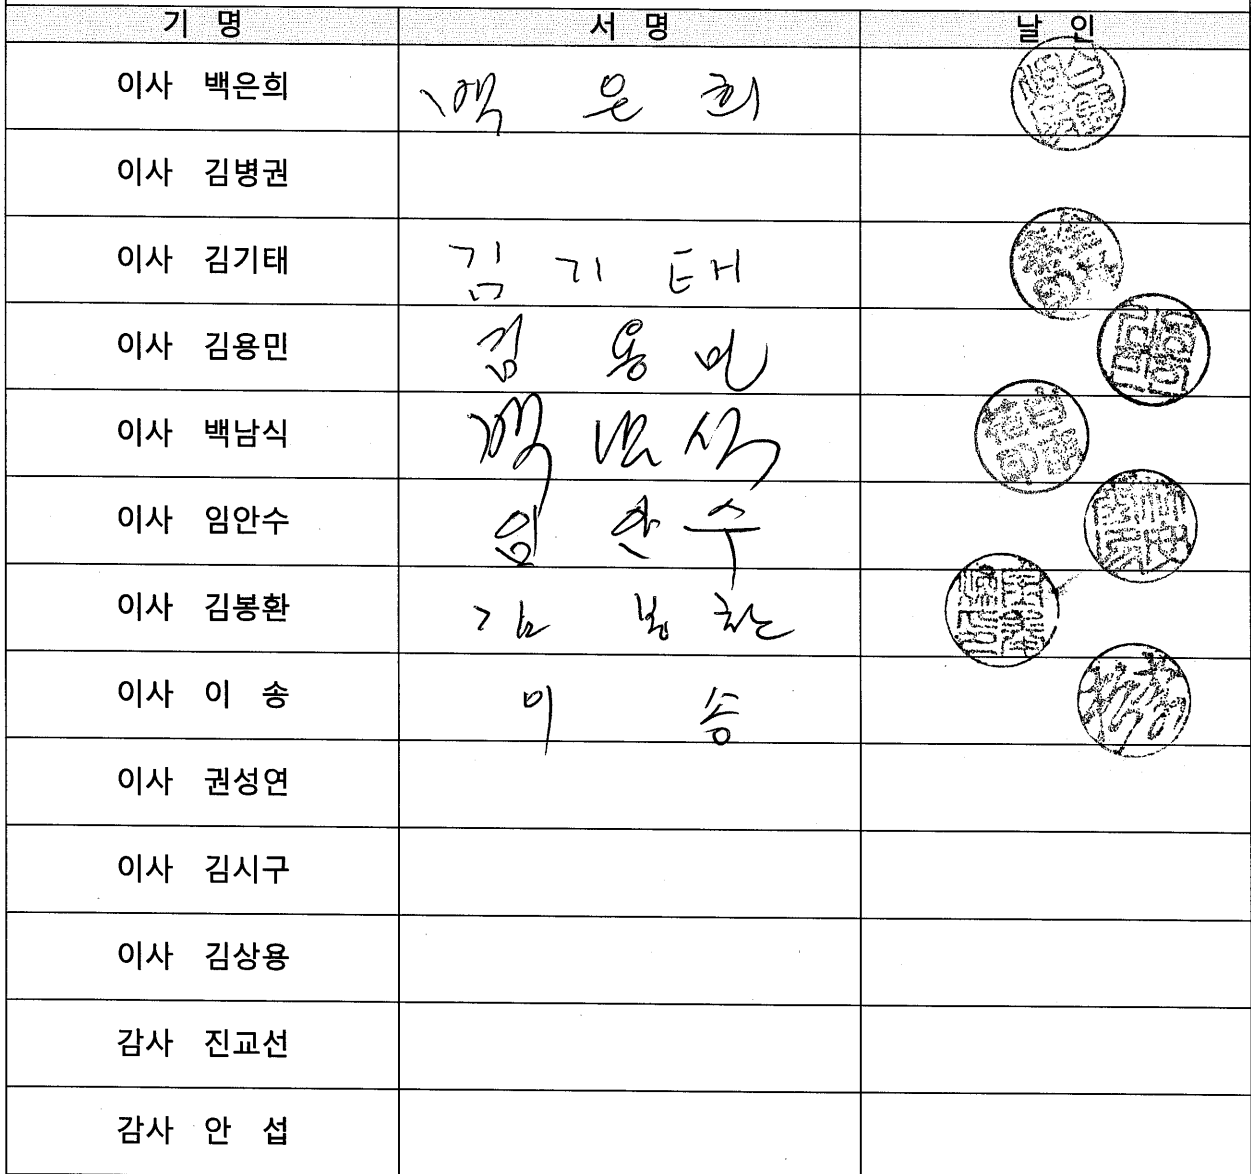 기 명 서 명 날 인
이사 백은희 백 은 희
이사 김병권
이사 김기태 김 기 태
이사 김용민 김 용 민
이사 백남식 백 남 식
이사 임안수 임 안 수
이사 김봉환 김 봉 환
이사 이 송 이 송
이사 권성연
이사 김시구
이사 김상용
감사 진교선
감사 안 섭